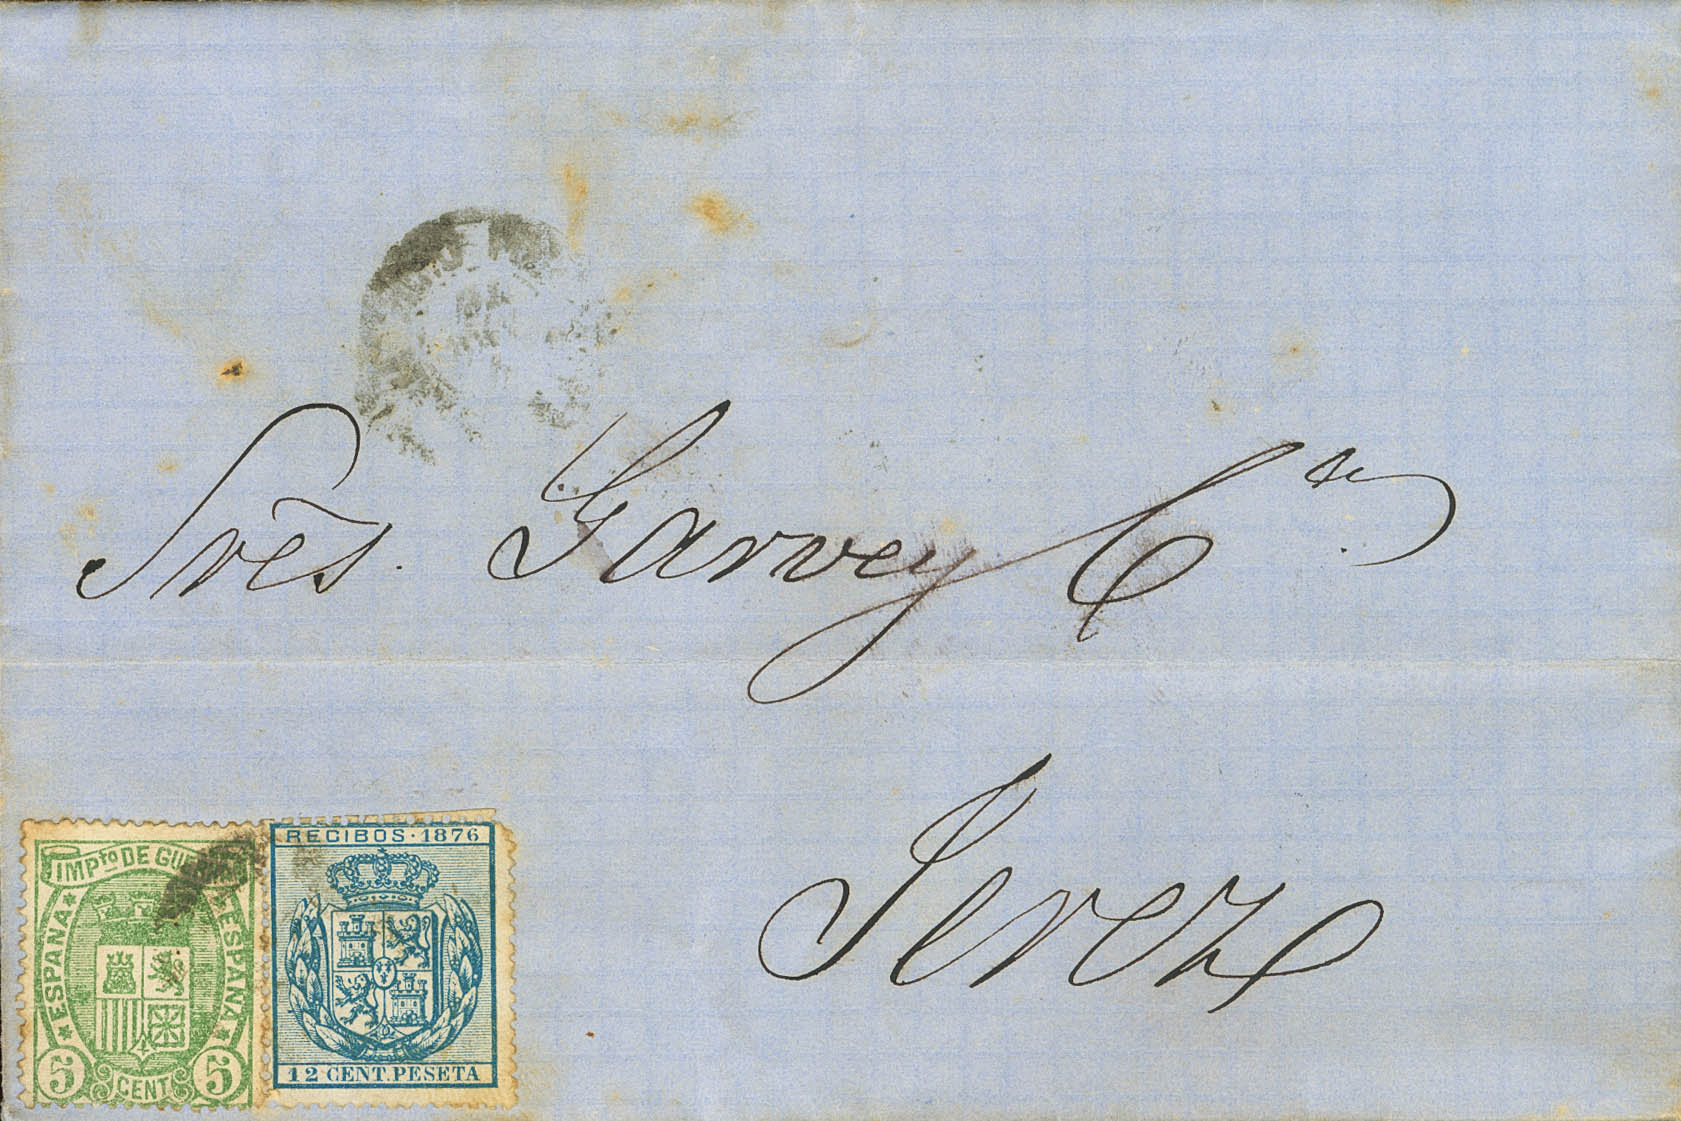 Srēs. Garvey Cª
Jerez
IMPto DE GUERRA
ESPAÑA ESPAÑA
5 CENT 5
RECIBOS · 1876
12 CENT. PESETA